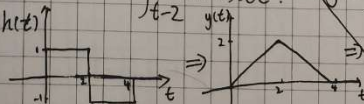 h(t)
∫t-2
y(t)
1
2
4
t
-1
⇒
2
2
4
t
⇒